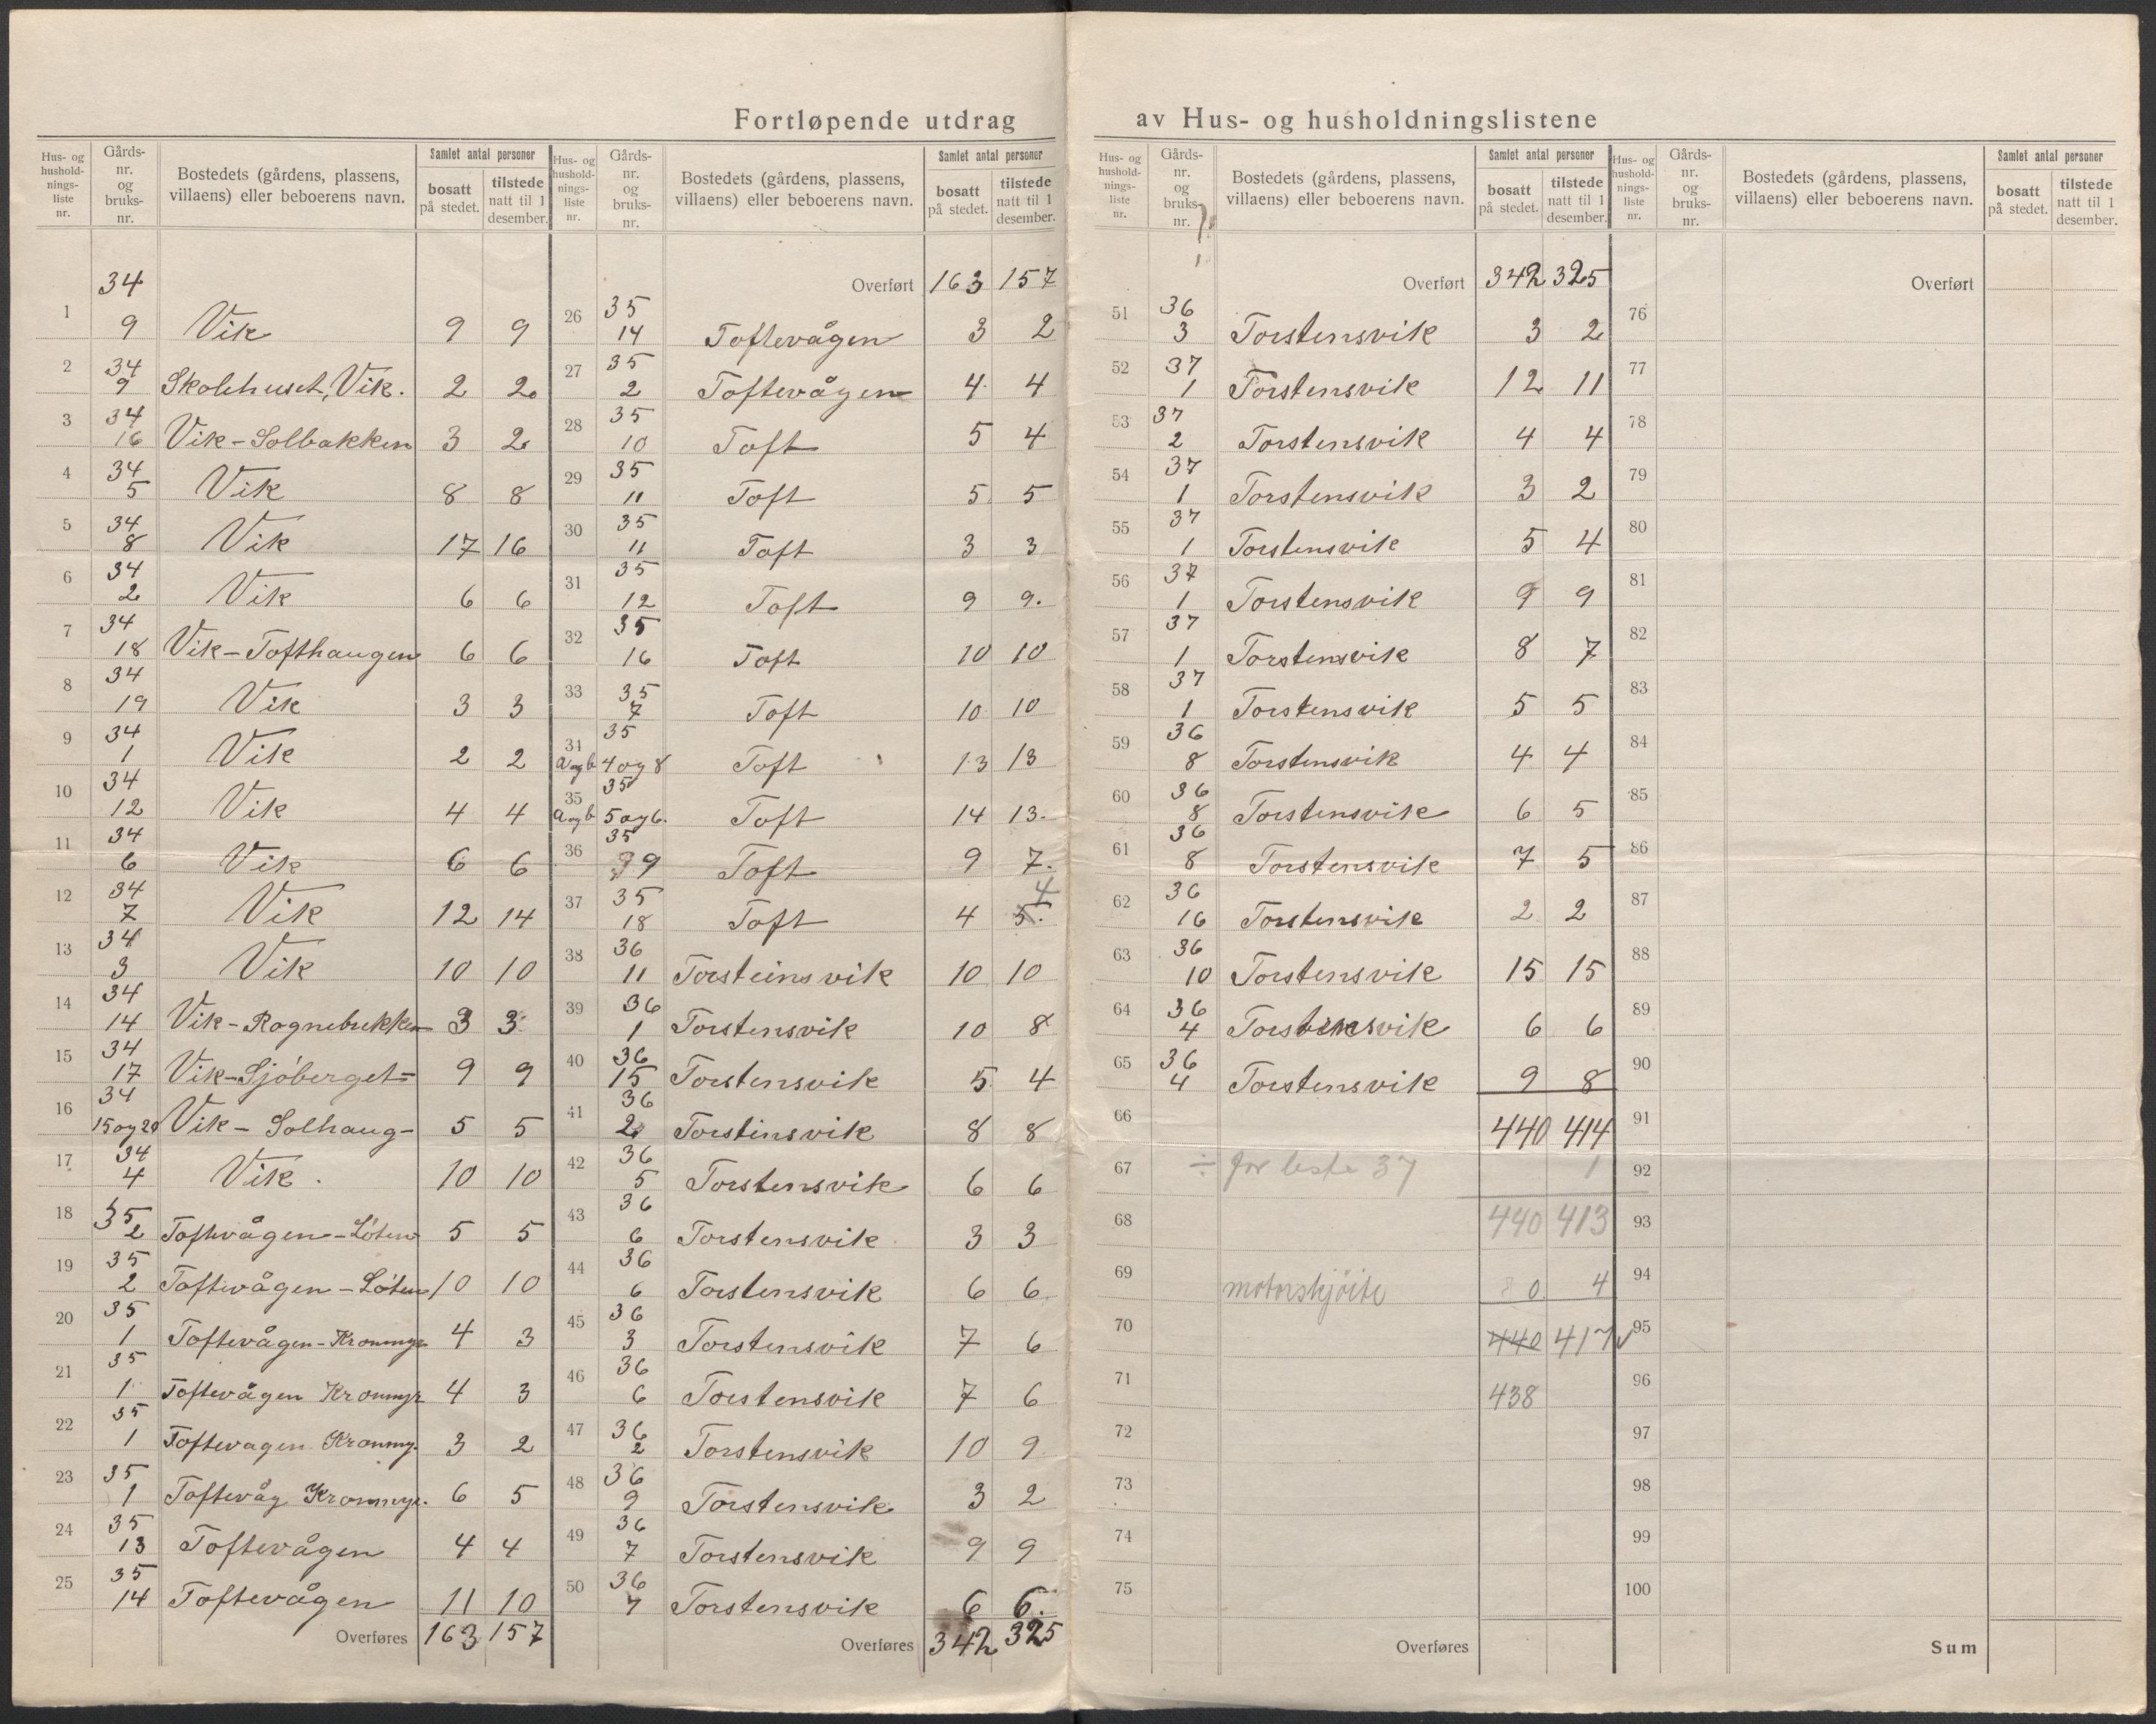 Fortløpende utdrag av Hus- og husholdningslistene
Hus- og husholdnings-liste nr. | Gårds-nr. og bruks-nr. | Bostedets (gårdens, plassens, villaens) eller beboerens navn. | Samlet antal personer | bosatt på stedet. | tilstede natt til 1 desember.
1 34 9 Vik 9 9
2 34 9 Skolehuset, Vik. 2 2
3 34 16 Vik-Solbakken 3 2
4 34 5 Vik 8 8
5 34 8 Vik 17 16
6 34 2 Vik 6 6
7 34 18 Vik-Tofthaugen 6 6
8 34 19 Vik 3 3
9 34 1 Vik 2 2
10 34 12 Vik 4 4
11 34 6 Vik 6 6
12 34 7 Vik 12 14
13 34 3 Vik 10 10
14 34 14 Vik-Rognebukken 3 3
15 34 17 Vik-Sjöberget 9 9
16 34 15 og 20 Vik-Solhaug- 5 5
17 34 4 Vik. 10 10
18 35 2 Toftevågen-Löten 5 5
19 35 2 Toftevågen-Löten 10 10
20 35 1 Toftevågen-Kronmyr 4 3
21 35 1 Toftevågen Kronmyr 4 3
22 35 1 Toftevagen Kronmy. 3 2
23 35 1 Toftevåg Kronmyr. 6 5
24 35 13 Toftevågen 4 4
25 35 14 Toftevågen 11 10
Overføres 163 157
Hus- og husholdnings-liste nr. | Gårds-nr. og bruks-nr. | Bostedets (gårdens, plassens, villaens) eller beboerens navn. | Samlet antal personer | bosatt på stedet. | tilstede natt til 1 desember.
Overført 163 157
26 35 14 Toftevågen 3 2
27 35 2 Toftevågen 4 4
28 35 10 Toft 5 4
29 35 11 Toft 5 5
30 35 11 Toft 3 3
31 35 12 Toft 9 9.
32 35 16 Toft 10 10
33 35 7 Toft 10 10
34 a og b 35 4 og 8 Toft 13 13
35 a og b 35 5 og 6. Toft 14 13.
36 35 9 Toft 9 7.
37 35 18 Toft 4 5. 4
38 36 11 Torsteinsvik 10 10
39 36 1 Torstensvik 10 8
40 36 15 Torstensvik 5 4
41 36 2 Torstinsvik 8 8
42 36 5 Torstensvik 6 6
43 36 6 Torstensvik 3 3
44 36 6 Torstensvik 6 6
45 36 3 Torstensvik 7 6
46 36 6 Torstensvik 7 6
47 36 2 Torstensvik 10 9
48 36 9 Torstensvik 3 2
49 36 7 Torstensvik 9 9
50 36 7 Torstensvik 6 6.
Overføres 342 325
Hus- og husholdnings-liste nr. | Gårds-nr. og bruks-nr. | Bostedets (gårdens, plassens, villaens) eller beboerens navn. | Samlet antal personer | bosatt på stedet. | tilstede natt til 1 desember.
Overført 342 325
51 36 3 Torstensvik 3 2
52 37 1 Torstensvik 12 11
53 37 2 Torstensvik 4 4
54 37 1 Torstensvik 3 2
55 37 1 Torstensvik 5 4
56 37 1 Torstensvik 9 9
57 37 1 Torstensvik 8 7
58 37 1 Torstensvik 5 5
59 36 8 Torstensvik 4 4
60 36 8 Torstensvik 6 5
61 36 8 Torstensvik 7 5
62 36 16 Torstensvik 2 2
63 36 10 Torstensvik 15 15
64 36 4 Torstensvik 6 6
65 36 4 Torstensvik 9 8
66 440 414
67 ÷ for liste 37 1
68 440 413
69 motorskjöite 0 4
70 440 417 ✓
71 438
72
73
74
75
Overføres
Hus- og husholdnings-liste nr. | Gårds-nr. og bruks-nr. | Bostedets (gårdens, plassens, villaens) eller beboerens navn. | Samlet antal personer | bosatt på stedet. | tilstede natt til 1 desember.
Overført
76
77
78
79
80
81
82
83
84
85
86
87
88
89
90
91
92
93
94
95
96
97
98
99
100
Sum